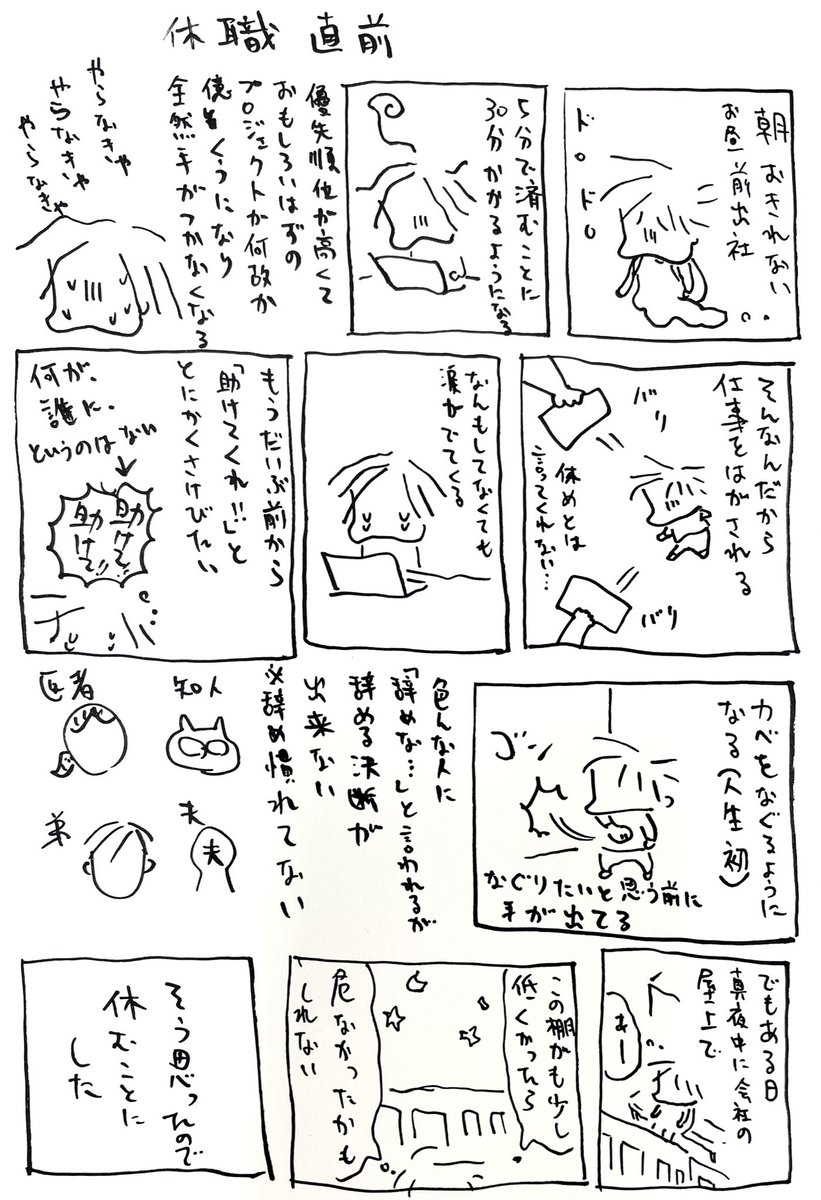 休職 直前
朝 おきれない
お昼前出社
ドロドロ
5分で済むことに
30分かかるようになる
優先順位が高くて
おもしろいはずの
プロジェクトが何故か
億劫になり
全然手がつかなくなる
やらなきゃ
やらなきゃ
やらなきゃ
そんなんだから
仕事をはがされる
バリ
休めとは
言ってくれない…
バリ
なんもしてなくても
涙がでてくる
もうだいぶ前から
「助けてくれ!!」と
とにかくさけびたい
何が、
誰に、
というのはない
助けて
助けて!!
カベをなぐるように
なる(人生初)
ゴッ
なぐりたいと思う前に
手が出てる
色んな人に
「辞めな…」と言われるが
辞める決断が
出来ない
※辞め慣れてない
知人
医者
夫
夫
弟
でもある日
真夜中に会社の
屋上で
あー
この柵がも少し
低くかったら
危なかったかも
しれない
そう思ったので
休むことに
した